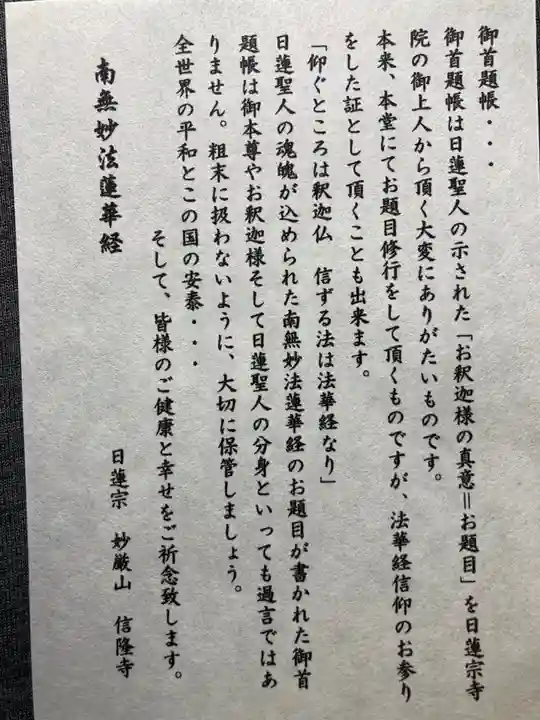 御首題帳・・・
御首題帳は日蓮聖人の示された「お釈迦様の真意＝お題目」を日蓮宗寺
院の御上人から頂く大変にありがたいものです。
本来、本堂にてお題目修行をして頂くものですが、法華経信仰のお参り
をした証として頂くことも出来ます。
「仰ぐところは釈迦仏　信ずる法は法華経なり」
日蓮聖人の魂魄が込められた南無妙法蓮華経のお題目が書かれた御首
題帳は御本尊やお釈迦様そして日蓮聖人の分身といっても過言ではあ
りません。粗末に扱わないように、大切に保管しましょう。
全世界の平和とこの国の安泰・・・
そして、皆様のご健康と幸せをご祈念致します。
南無妙法蓮華経
日蓮宗　妙厳山　信隆寺